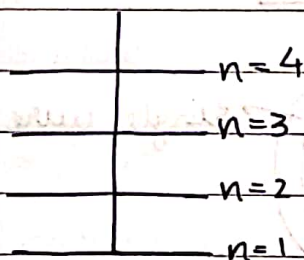 n = 4
n = 3
n = 2
n = 1